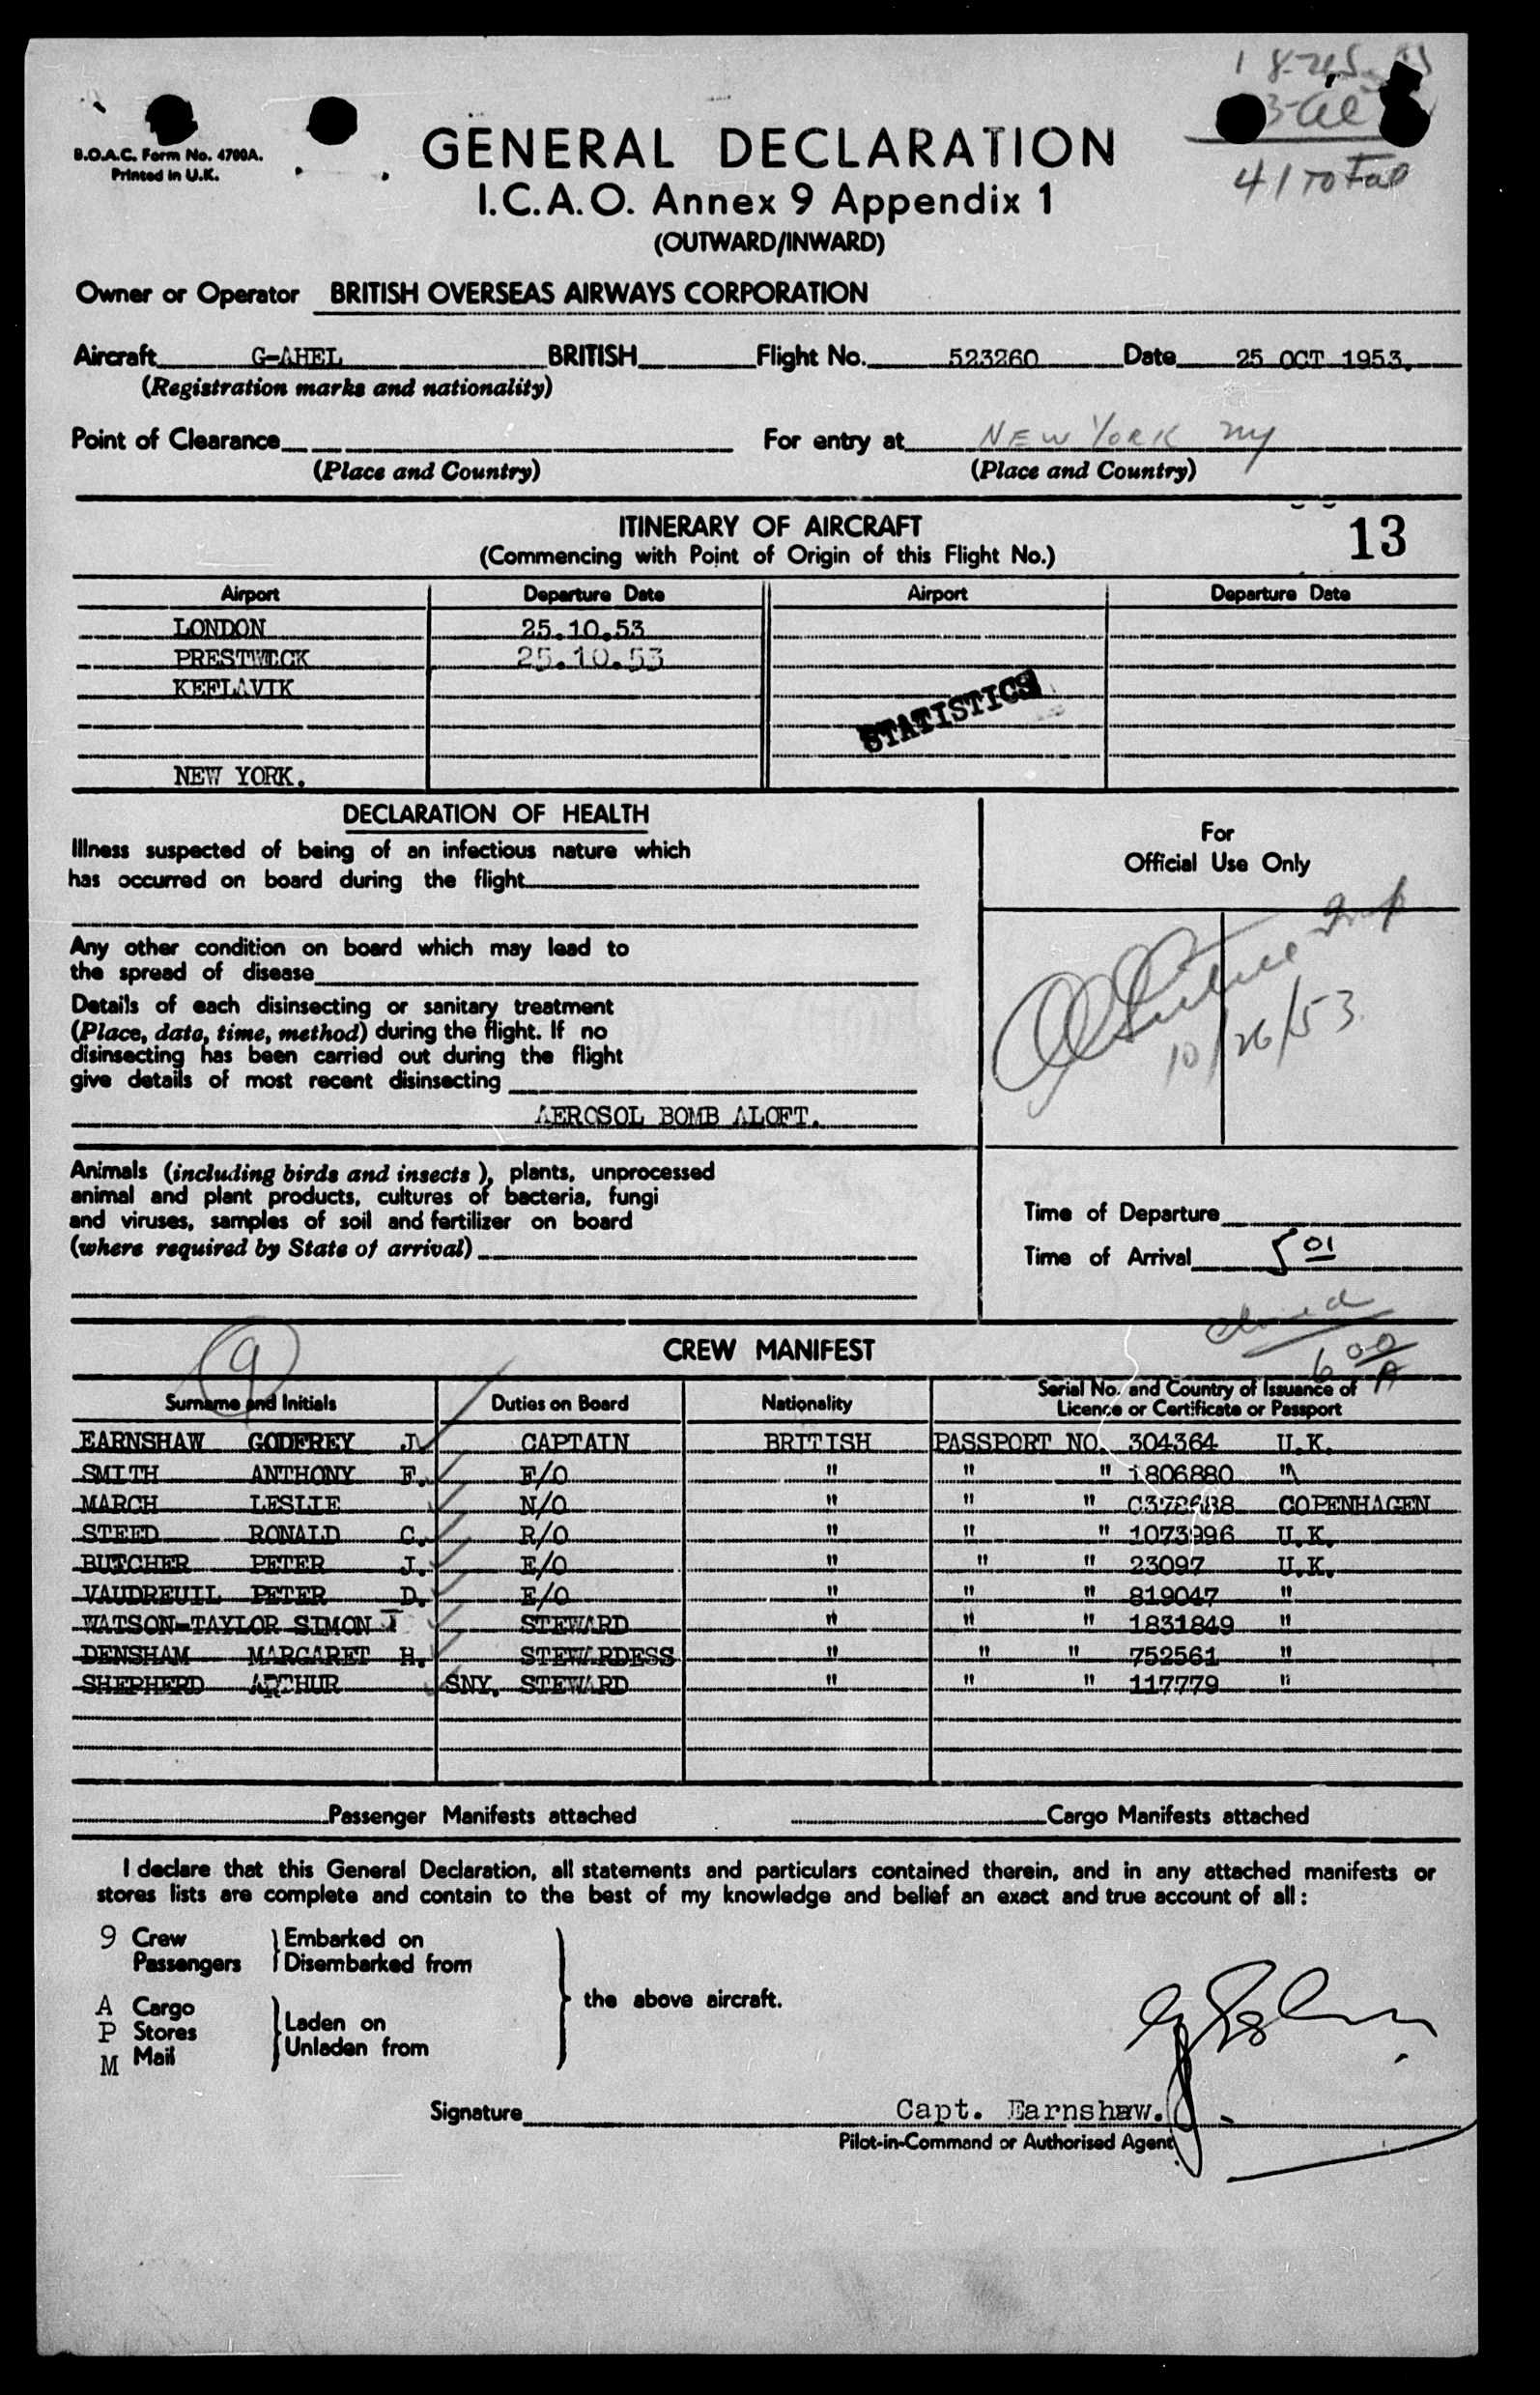 B.O.A.C. Form No. 4700A.
Printed in U.K.
GENERAL DECLARATION
I.C.A.O. Annex 9 Appendix 1
(OUTWARD/INWARD)
41 TOTAL
Owner or Operator BRITISH OVERSEAS AIRWAYS CORPORATION
Aircraft G-AHEL BRITISH Flight No. 523260 Date 25 OCT 1953.
(Registration marks and nationality)
Point of Clearance For entry at NEW YORK NY
(Place and Country) (Place and Country)
ITINERARY OF AIRCRAFT
(Commencing with Point of Origin of this Flight No.)
13
Airport Departure Date Airport Departure Date
LONDON 25.10.53
PRESTWICK 25.10.53
KEFLAVIK
STATISTICS
NEW YORK.
DECLARATION OF HEALTH
Illness suspected of being of an infectious nature which
has occurred on board during the flight
Any other condition on board which may lead to
the spread of disease
Details of each disinsecting or sanitary treatment
(Place, date, time, method) during the flight. If no
disinsecting has been carried out during the flight
give details of most recent disinsecting
AEROSOL BOMB ALOFT.
Animals (including birds and insects), plants, unprocessed
animal and plant products, cultures of bacteria, fungi
and viruses, samples of soil and fertilizer on board
(where required by State of arrival)
For
Official Use Only
10/26/53
Time of Departure
Time of Arrival 5 01
6 00 A
9
CREW MANIFEST
Surname and Initials Duties on Board Nationality Serial No. and Country of Issuance of
Licence or Certificate or Passport
EARNSHAW GODFREY J. CAPTAIN BRITISH PASSPORT NO. 304364 U.K.
SMITH ANTHONY F. F/O " " " 1806880 "
MARCH LESLIE N/O " " " C378688 COPENHAGEN
STEED RONALD C. R/O " " " 1073996 U.K.
BUTCHER PETER J. E/O " " " 23097 U.K.
VAUDREUIL PETER D. E/O " " " 819047 "
WATSON-TAYLOR SIMON J STEWARD " " " 1831849 "
DENSHAM MARGARET H. STEWARDESS " " " 752561 "
SHEPHERD ARTHUR SNY. STEWARD " " " 117779 "
Passenger Manifests attached Cargo Manifests attached
I declare that this General Declaration, all statements and particulars contained therein, and in any attached manifests or
stores lists are complete and contain to the best of my knowledge and belief an exact and true account of all:
9 Crew Embarked on
Passengers Disembarked from
the above aircraft.
A Cargo
P Stores Laden on
M Mail Unladen from
Signature Capt. Earnshaw.
Pilot-in-Command or Authorised Agent